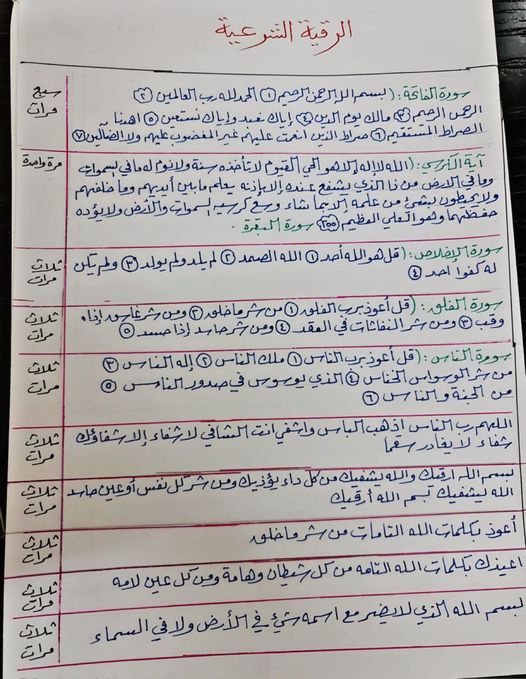 الرقية الشرعية
سبع
مرات
سورة الفاتحة: (بسم الله الرحمن الرحيم ① الحمد لله رب العالمين ②
الرحمن الرحيم ③ مالك يوم الدين ④ إياك نعبد وإياك نستعين ⑤ اهدنا
الصراط المستقيم ⑥ صراط الذين انعمت عليهم غير المغضوب عليهم ولا الضالين ⑦
مرة واحدة
آية الكرسي: (الله لا إله إلا هو الحي القيوم لا تأخذه سنة ولا نوم له ما في السموات
وما في الارض من ذا الذي يشفع عنده إلا بإذنه يعلم ما بين أيديهم وما خلفهم
ولا يحيطون بشئ من علمه إلا بما شاء وسع كرسيه السموات والأرض ولا يؤده
حفظهما وهو العلي العظيم ②⑤⑤ سورة البقرة.
ثلاث
مرات
سورة الإخلاص: (قل هو الله أحد ① الله الصمد ② لم يلد ولم يولد ③ ولم يكن
له كفوا احد ④
ثلاث
مرات
سورة الفلق: (قل أعوذ برب الفلق ① من شر ما خلق ② ومن شر غاسق إذا
وقب ③ ومن شر النفاثات في العقد ④ ومن شر حاسد إذا حسد ⑤
ثلاث
مرات
سورة الناس: (قل أعوذ برب الناس ① ملك الناس ② إله الناس ③
من شر الوسواس الخناس ④ الذي يوسوس في صدور الناس ⑤
من الجنة والناس ⑥
ثلاث
مرات
اللهم رب الناس اذهب الباس واشفي انت الشافي لا شفاء إلا شفاؤك
شفاء لا يغادر سقما
ثلاث
مرات
بسم الله ارقيك والله يشفيك من كل داء يؤذيك ومن شر كل نفس أو عين حاسد
الله يشفيك بسم الله أرقيك
ثلاث
مرات
أعوذ بكلمات الله التامات من شر ما خلق
ثلاث
مرات
اعيذك بكلمات الله التامه من كل شيطان وهامة ومن كل عين لامه
ثلاث
مرات
بسم الله الذي لا يضر مع اسمه شيء في الأرض ولا في السماء